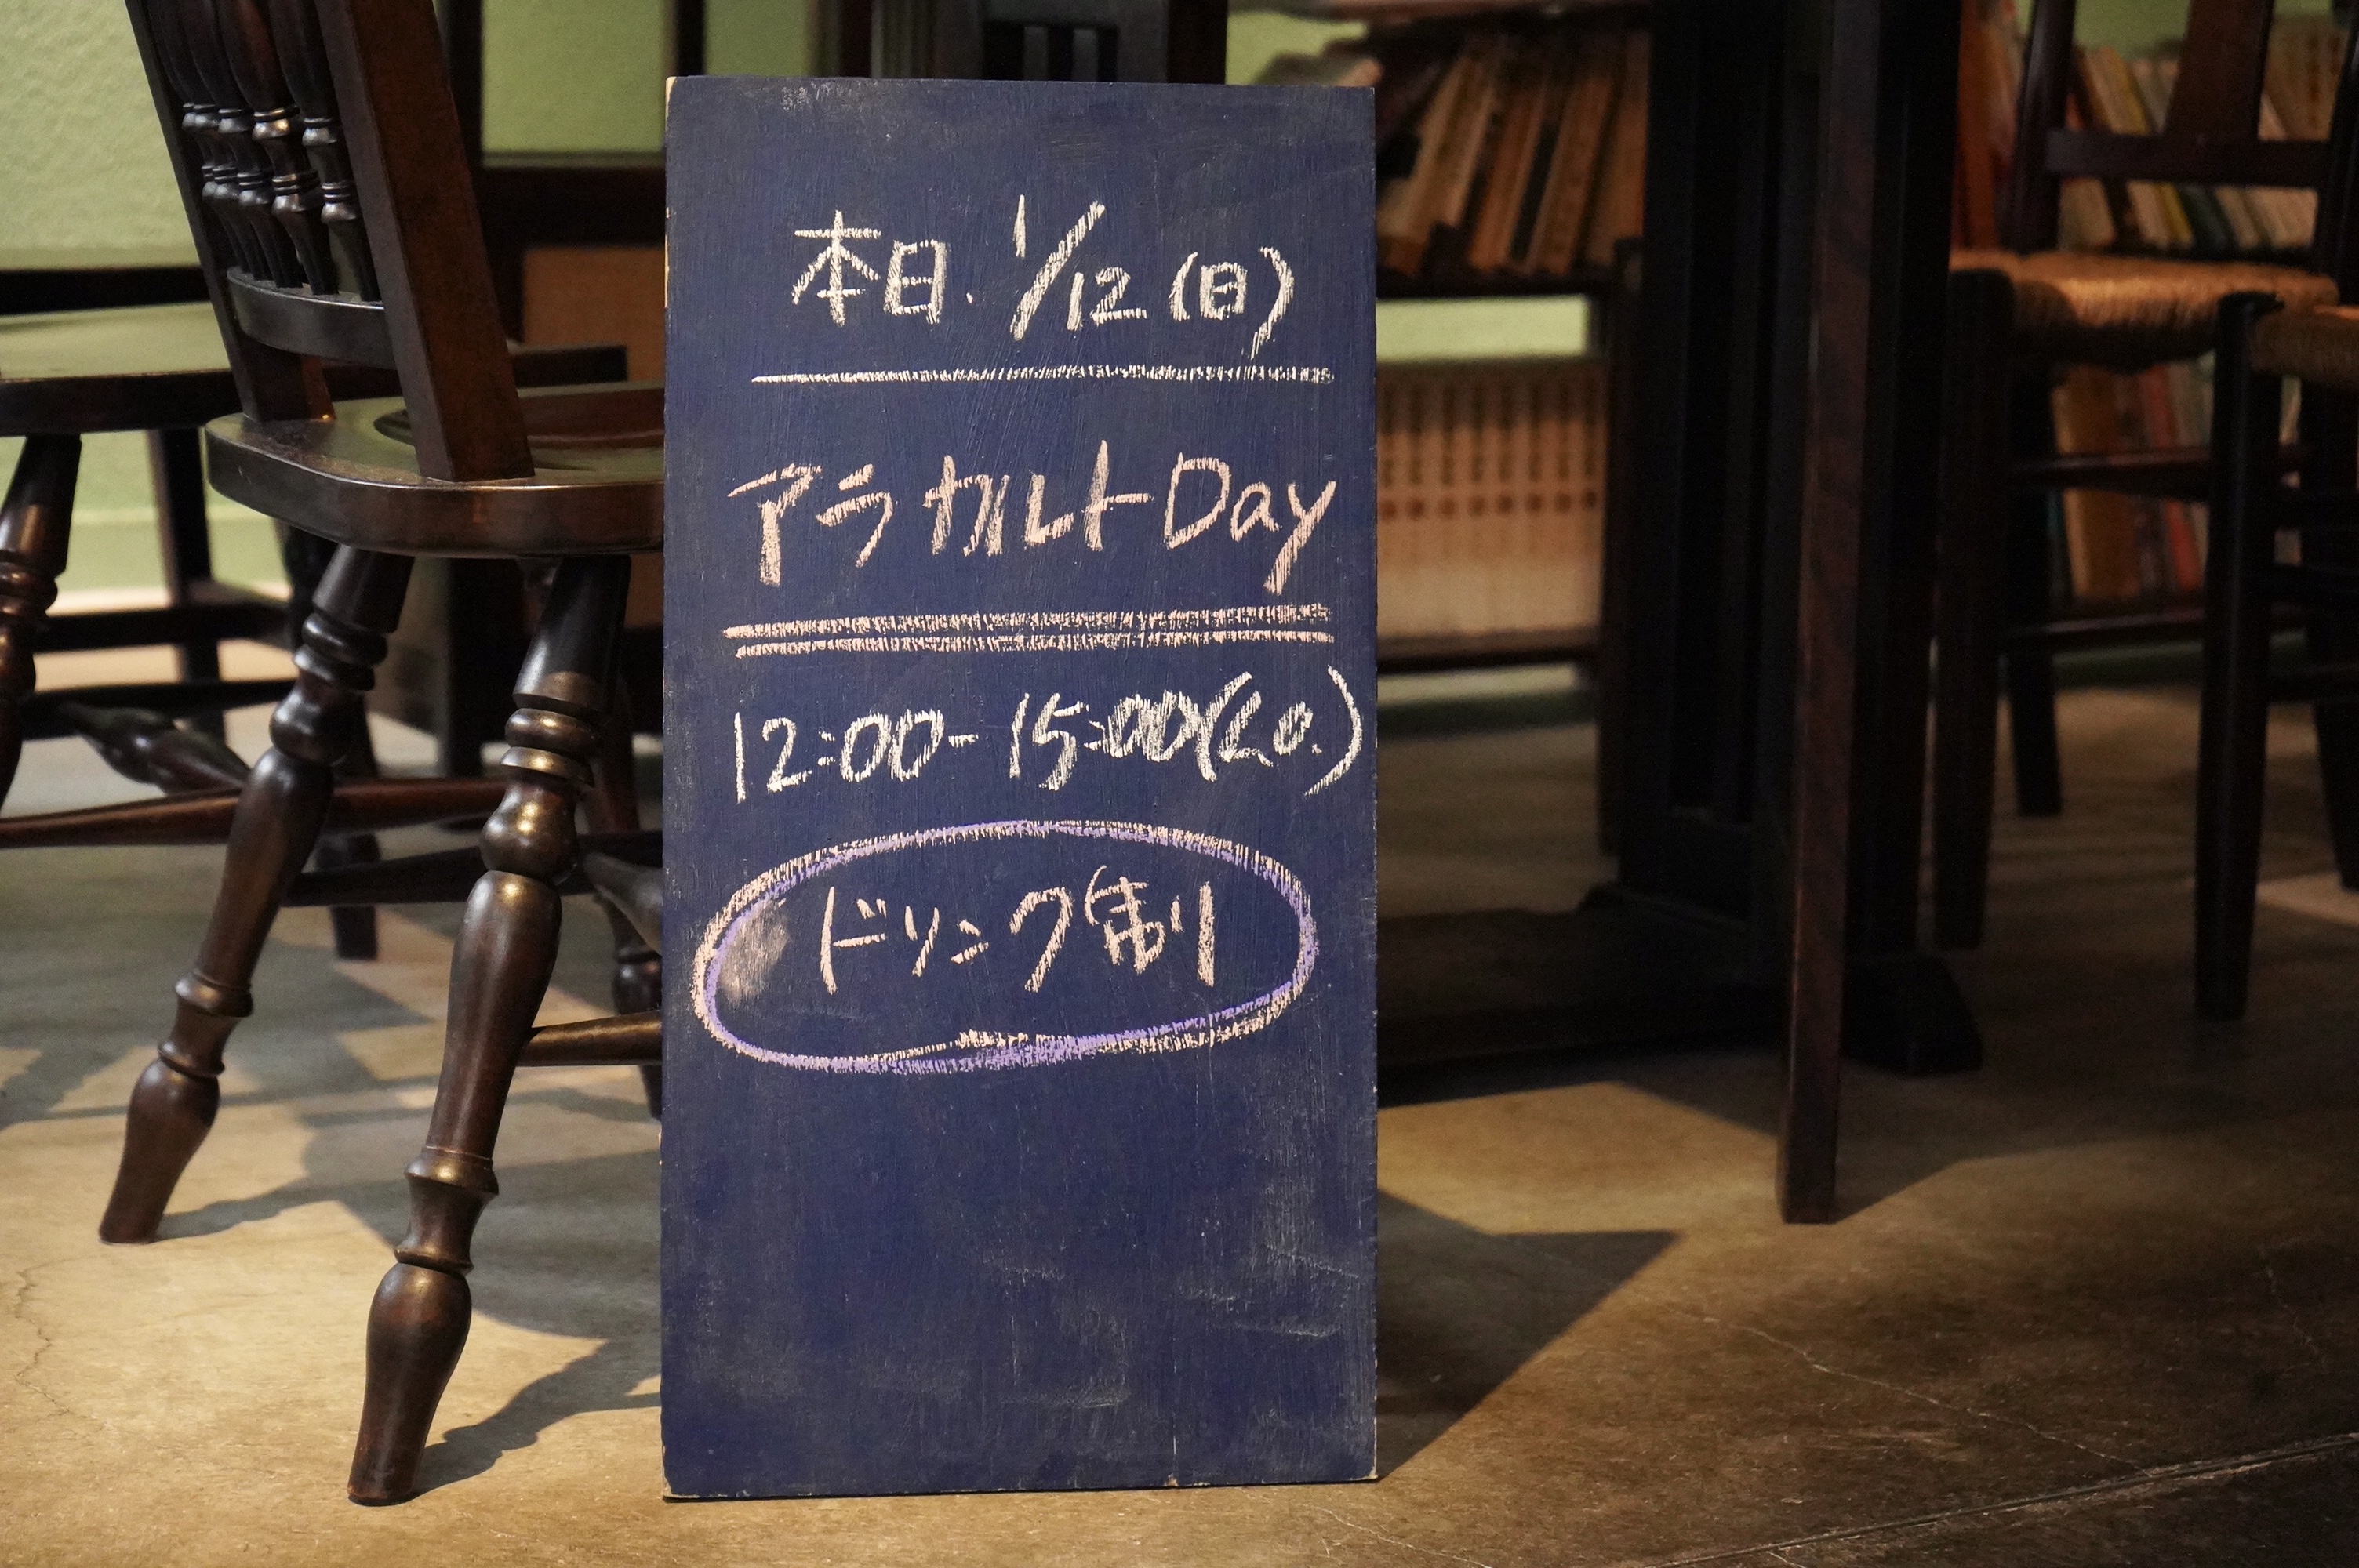 本日. 1/12(日)
アラカルトDay
12:00-15:00(L.O.)
ドリンク制